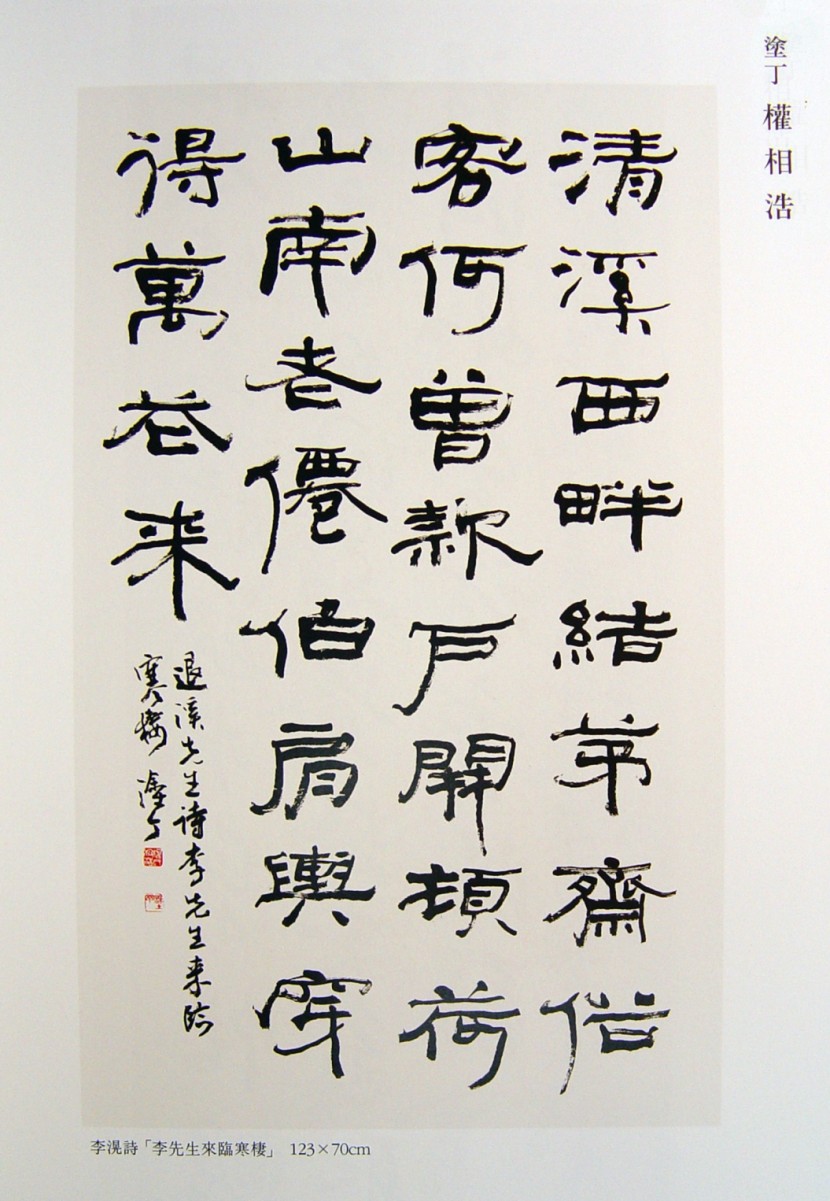 塗丁 權相浩
清溪西畔結茅齋俗
客何曾款戶開頓荷
山南老僊伯肩輿穿
得萬花来
退溪先生詩李先生来臨
寒棲 塗丁
李滉詩「李先生來臨寒棲」 123×70cm